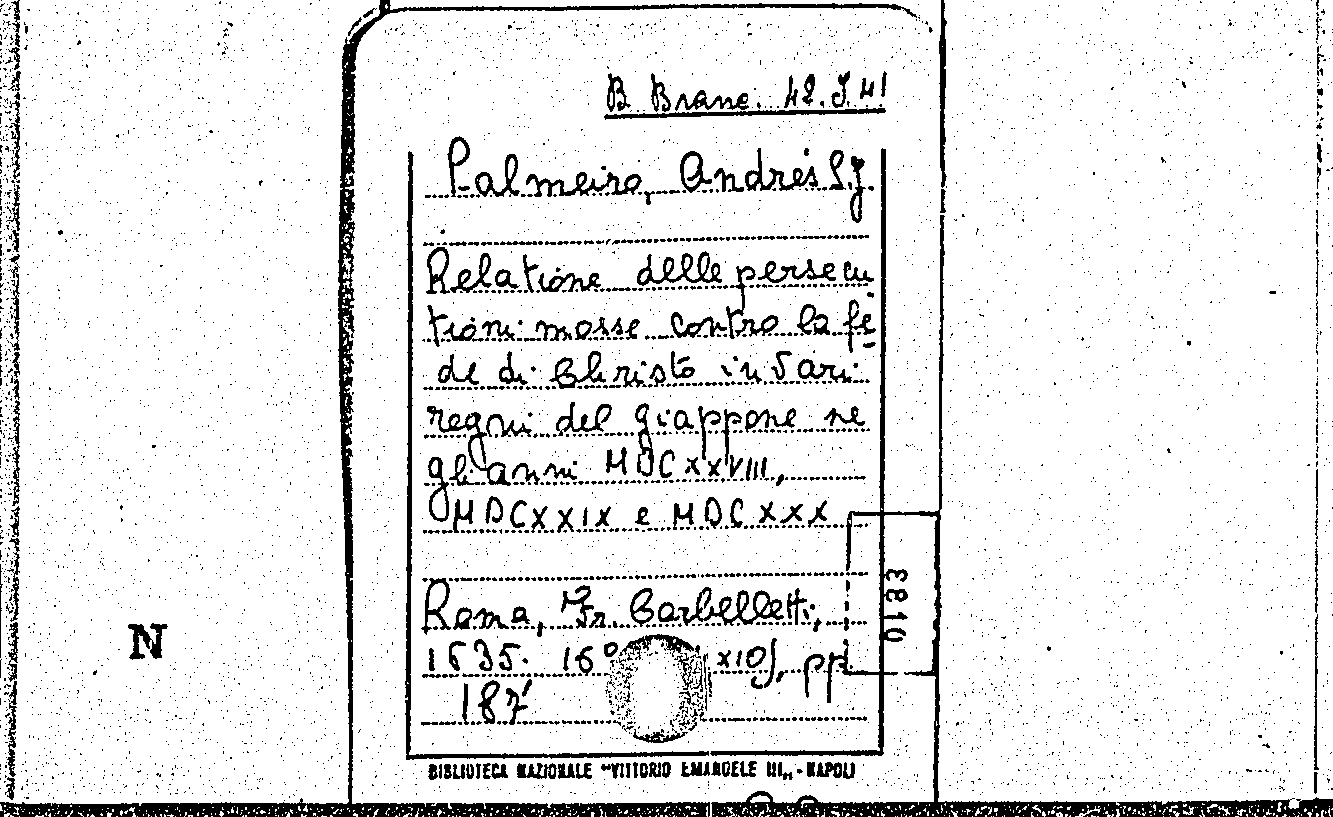 B. Branc. 42. J. 41
Palmeiro, Andrés S.J.
Relatione delle persecu
tioni mosse contro la fe
de di Christo in vari
regni del giappone ne
gli anni MDCXXVIII,
MDCXXIX e MDCXXX
Roma, Fr. Corbelletti,
1635. 16° x10), pp
187
3810
N
BIBLIOTECA NAZIONALE "VITTORIO EMANUELE III" - NAPOLI